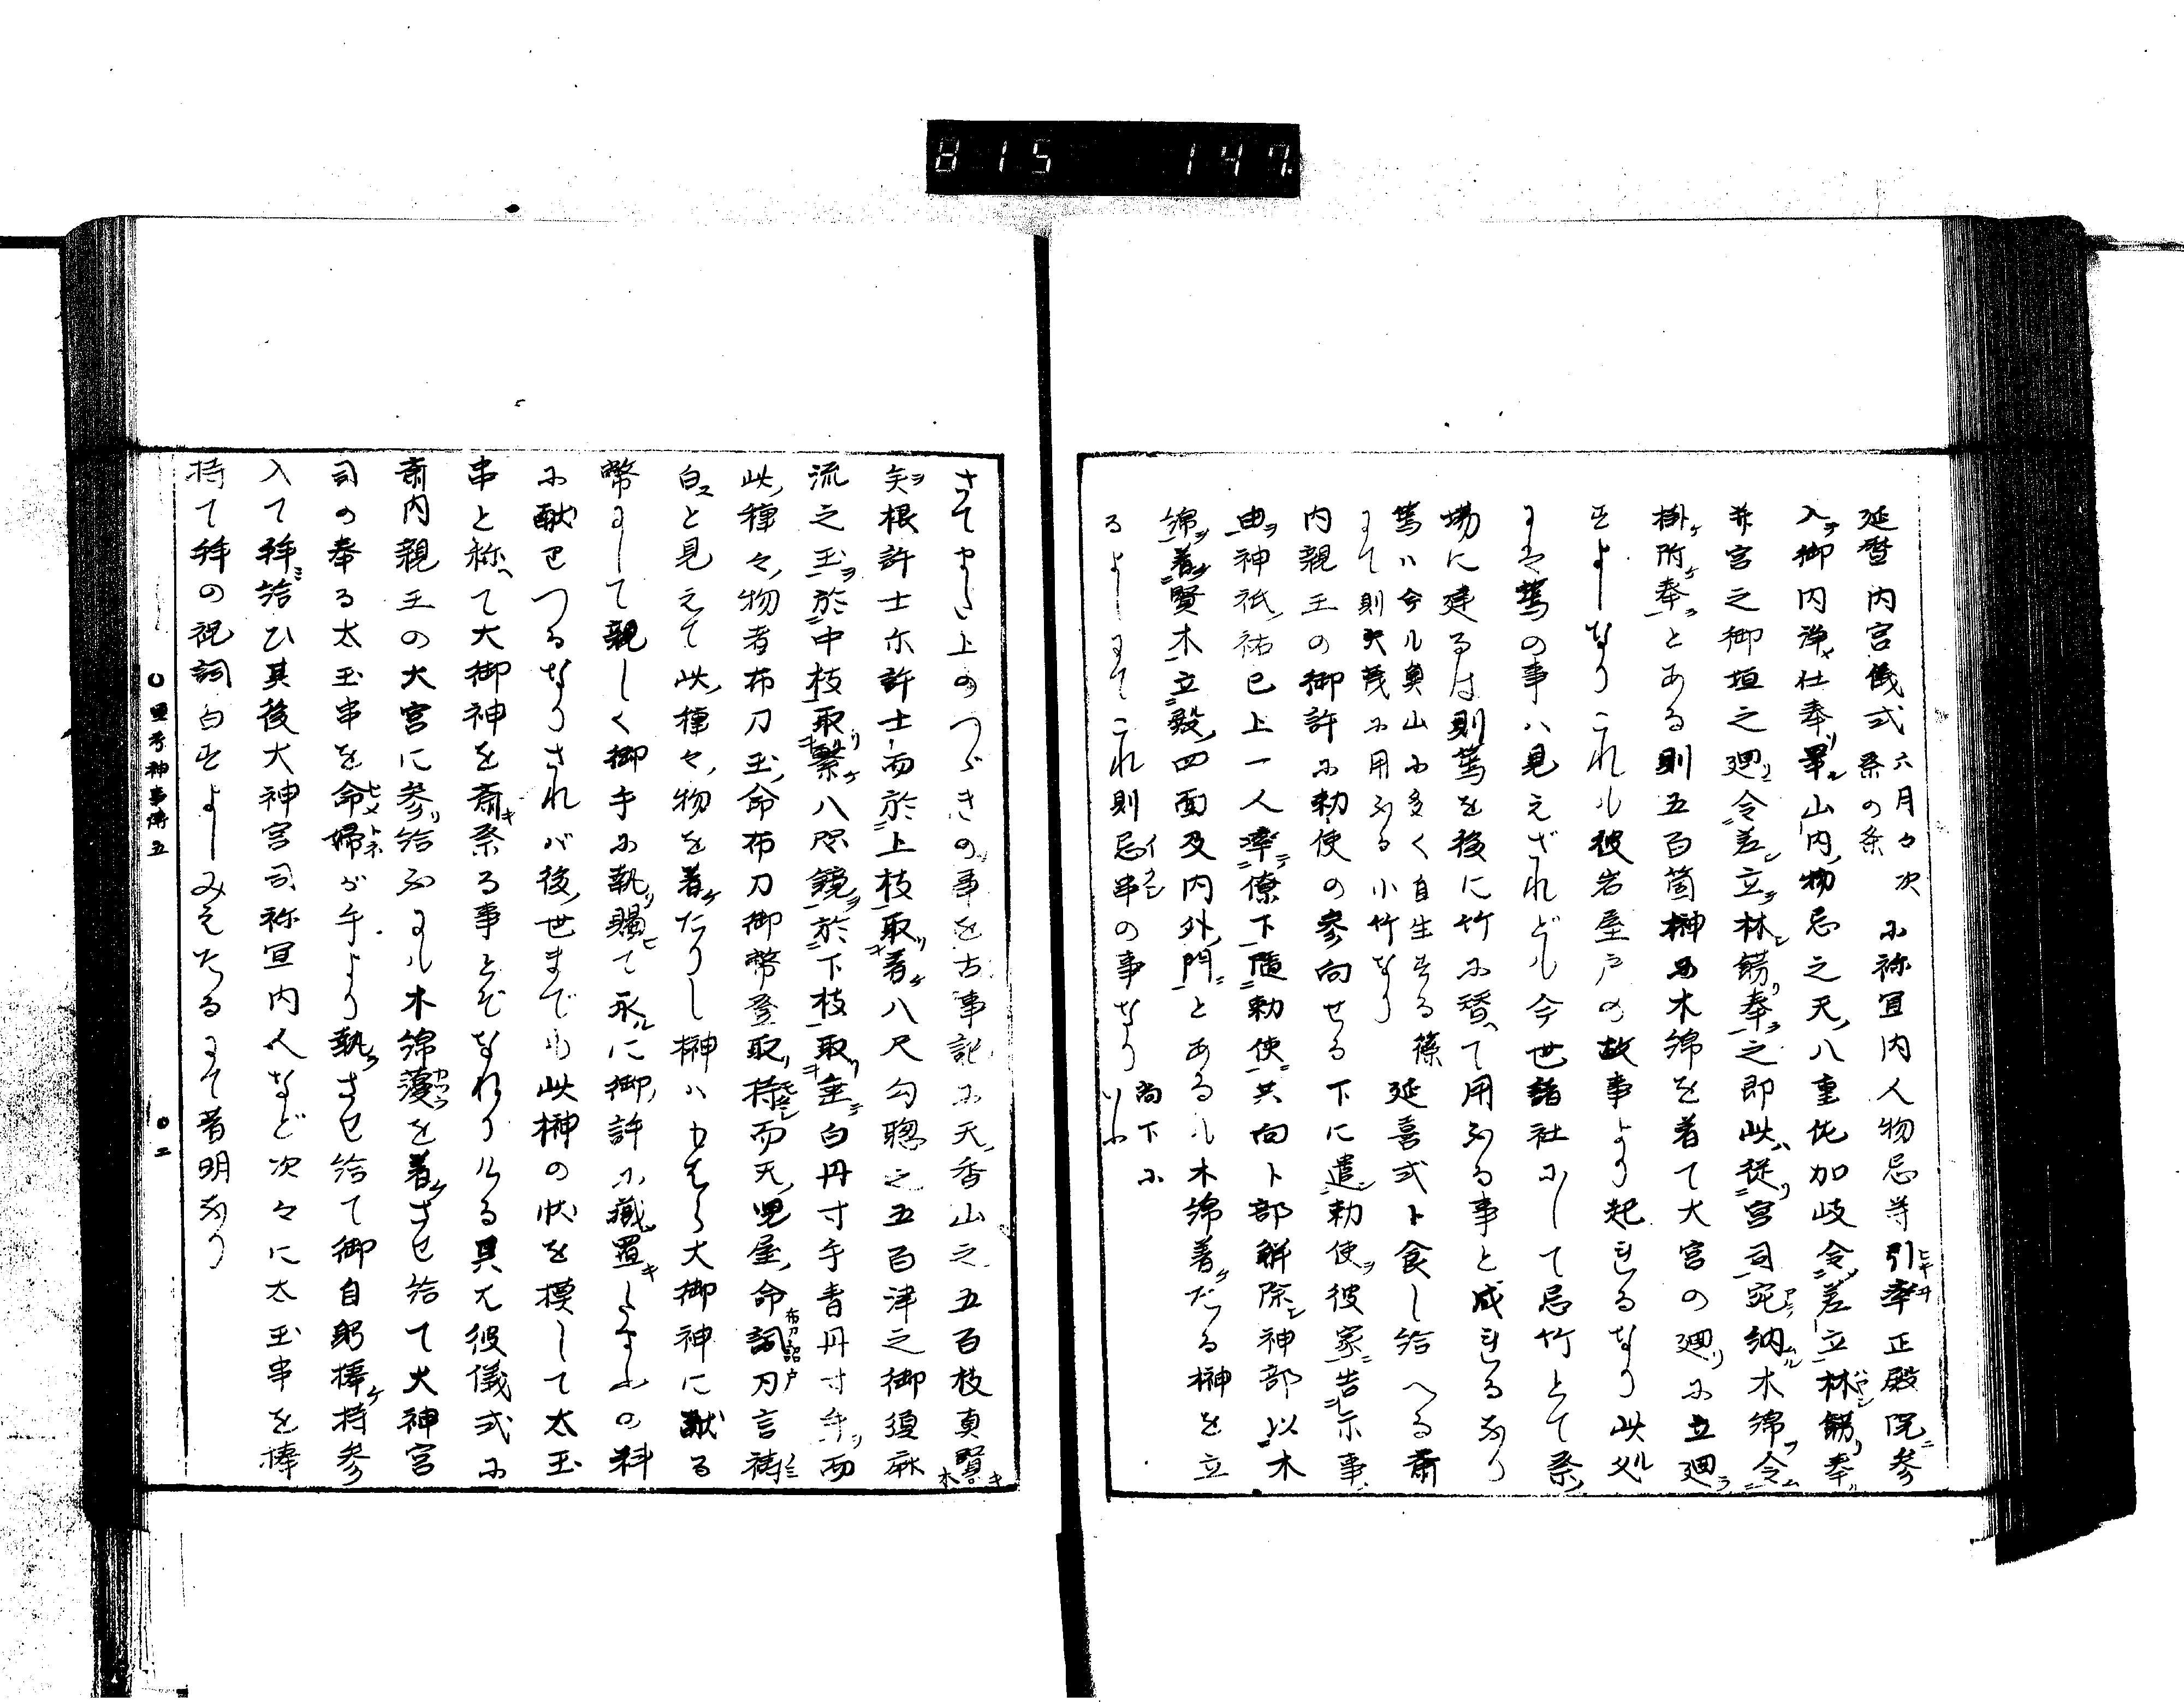 815 147
延暦内宮儀式六月月次祭の条小祢宜内人物忌等引率正殿院参
入御内浄仕奉畢山内物忌之天八重佐加岐令差立林餝奉
并宮之御垣之廻令差立林餝奉之即此従宮司宛納木綿令
掛附奉とある則五百箇榊小木綿を着て大宮の廻小立廻
せよしなりこれも彼岩屋戸の故事より起れるなり此処
にハ篶の事ハ見えざれども今世諸社小して忌竹とて祭
場に建るは則篶を後に竹小替て用ふる事と成れるなり
篶ハ今ル奥山小多く自生する篠
にて則矢篦小用ふる小竹なり
延喜式卜食し給へる斎
内親王の御許小勅使の参向せる下に遣勅使彼家告示事
由神祇祐已上一人率僚下随勅使共向卜部解除神部以木
綿着賢木立殿四面及内外門とあるも木綿着たる榊を立
るよしにてこれ則忌串の事なり尚下小いふ
さてまた上のつゞきの事を古事記小天香山之五百枝真賢木
矣根許士尓許士而於上枝取着八尺勾璁之五百津之御須麻
流之玉於中枝取繋八咫鏡於下枝取垂白丹寸手青丹寸手而
此種々物者布刀玉命布刀御幣登取持而天児屋命布刀詔戸詞刀言祷
白と見えて此種々物を着たりし榊ハもはら大御神に献る
幣にして親しく御手小執賜て永に御許小蔵置たまふの料
小献せつるなりされバ後世までも此榊の状を模して太玉
串と称て大御神を斎祭る事とぞなれりける具ハ彼儀式小
斎内親王の大宮に参給ふにも木綿蘰を着させ給て大神宮
司の奉る太玉串を命婦が手より執らせ給て御自躬捧持参
入て拝給ひ其後大神宮司祢宜内人など次々に太玉串を捧
持て拝の祝詞白せよしみえたるにて著明なり
神事傳五
〇二